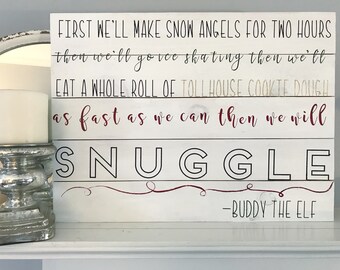 FIRST WE'LL MAKE SNOW ANGELS FOR TWO HOURS
then we'll go ice skating then we'll
EAT A WHOLE ROLL OF TOLLHOUSE COOKIE DOUGH
as fast as we can then we will
SNUGGLE
-BUDDY THE ELF